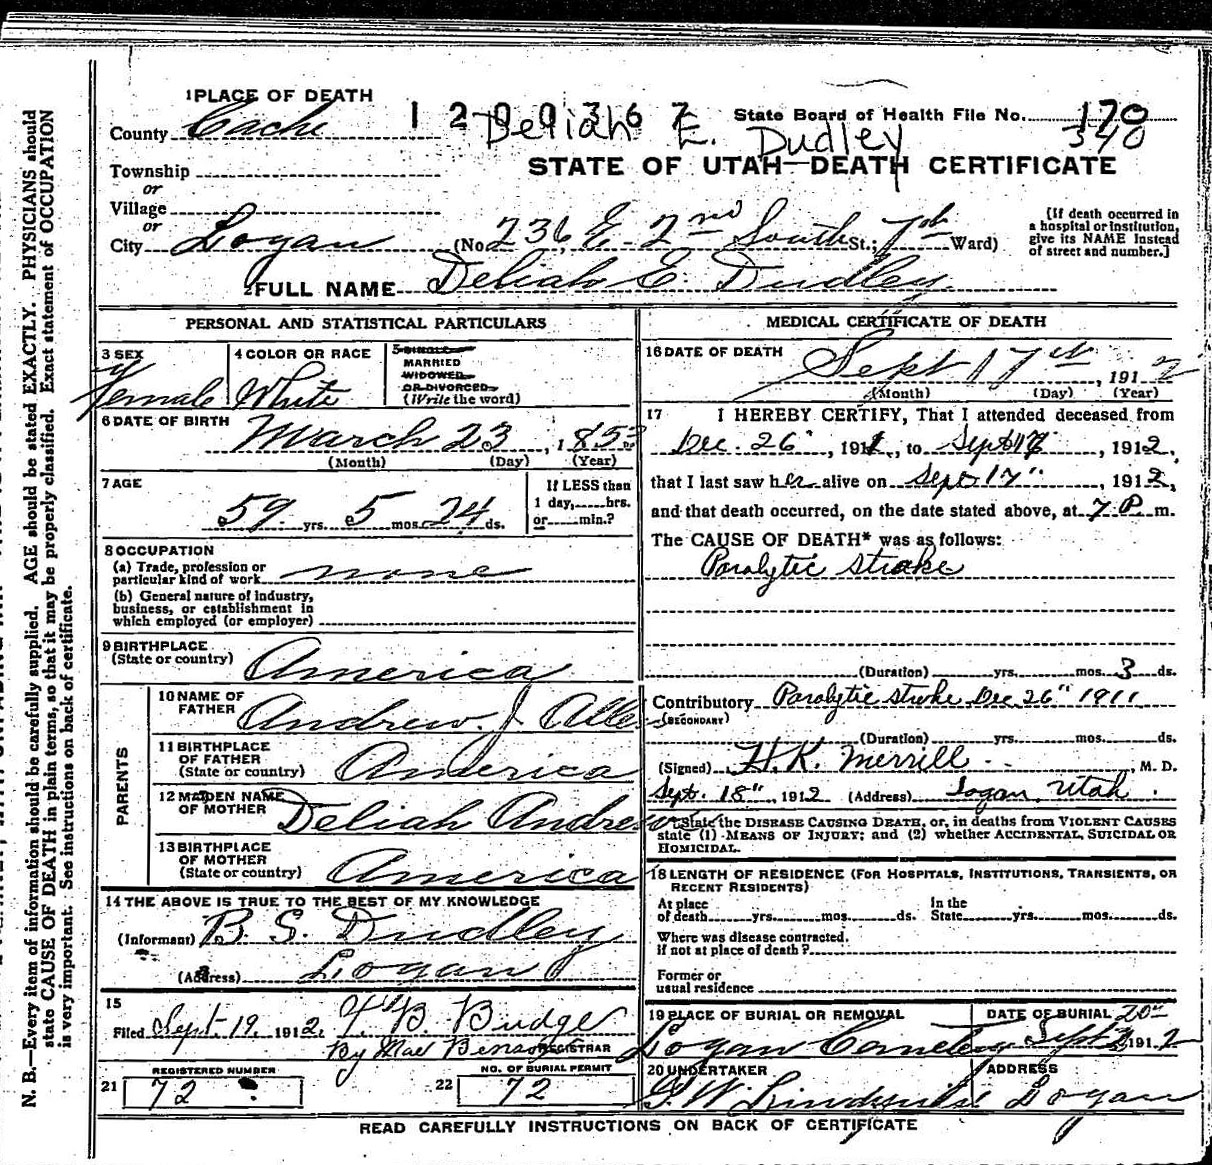 1 PLACE OF DEATH
County Cache
1200367
Deliah E. Dudley
State Board of Health File No. 170
340
STATE OF UTAH—DEATH CERTIFICATE
Township
or
Village
or
City Logan (No. 236 E. 2nd South St.; 7th Ward)
[If death occurred in
a hospital or institution,
give its NAME instead
of street and number.]
2 FULL NAME Deliah E. Dudley
PERSONAL AND STATISTICAL PARTICULARS
3 SEX
female
4 COLOR OR RACE
White
5 SINGLE
MARRIED
WIDOWED
OR DIVORCED
(Write the word)
6 DATE OF BIRTH
March 23, 1853
(Month) (Day) (Year)
7 AGE
59 yrs. 5 mos. 24 ds.
If LESS than
1 day, hrs.
or min.?
8 OCCUPATION
(a) Trade, profession or
particular kind of work none
(b) General nature of industry,
business, or establishment in
which employed (or employer)
9 BIRTHPLACE
(State or country) America
PARENTS
10 NAME OF
FATHER Andrew. J Alle
11 BIRTHPLACE
OF FATHER
(State or country) America
12 MAIDEN NAME
OF MOTHER Deliah Andrew
13 BIRTHPLACE
OF MOTHER
(State or country) America
14 THE ABOVE IS TRUE TO THE BEST OF MY KNOWLEDGE
(Informant) B. S. Dudley
(Address) Logan
15
Filed Sept. 19, 1912. B. Budge
By Mae Benson REGISTRAR
REGISTERED NUMBER
21 72
NO. OF BURIAL PERMIT
22 72
MEDICAL CERTIFICATE OF DEATH
16 DATE OF DEATH
Sept 17th, 1912
(Month) (Day) (Year)
17 I HEREBY CERTIFY, That I attended deceased from
Dec. 26", 1911, to Sept 17, 1912,
that I last saw her alive on Sept 17", 1912,
and that death occurred, on the date stated above, at 7 P. m.
The CAUSE OF DEATH* was as follows:
Paralytic stroke
(Duration) yrs. mos. 3 ds.
Contributory Paralytic stroke Dec 26" 1911
(SECONDARY)
(Duration) yrs. mos. ds.
(Signed) H. K. Merrill, M. D.
Sept. 18", 1912 (Address) Logan, Utah.
*State the DISEASE CAUSING DEATH, or, in deaths from VIOLENT CAUSES
state (1) MEANS OF INJURY; and (2) whether ACCIDENTAL, SUICIDAL OR
HOMICIDAL.
18 LENGTH OF RESIDENCE (FOR HOSPITALS, INSTITUTIONS, TRANSIENTS, OR
RECENT RESIDENTS)
At place
of death yrs. mos. ds.
In the
State yrs. mos. ds.
Where was disease contracted,
if not at place of death?
Former or
usual residence
19 PLACE OF BURIAL OR REMOVAL
Logan Cemetery
DATE OF BURIAL 20"
Sept 1912
20 UNDERTAKER
G. W. Lindquist
ADDRESS
Logan
READ CAREFULLY INSTRUCTIONS ON BACK OF CERTIFICATE
N. B.—Every item of information should be carefully supplied. AGE should be stated EXACTLY. PHYSICIANS should
state CAUSE OF DEATH in plain terms, so that it may be properly classified. Exact statement of OCCUPATION
is very important. See instructions on back of certificate.